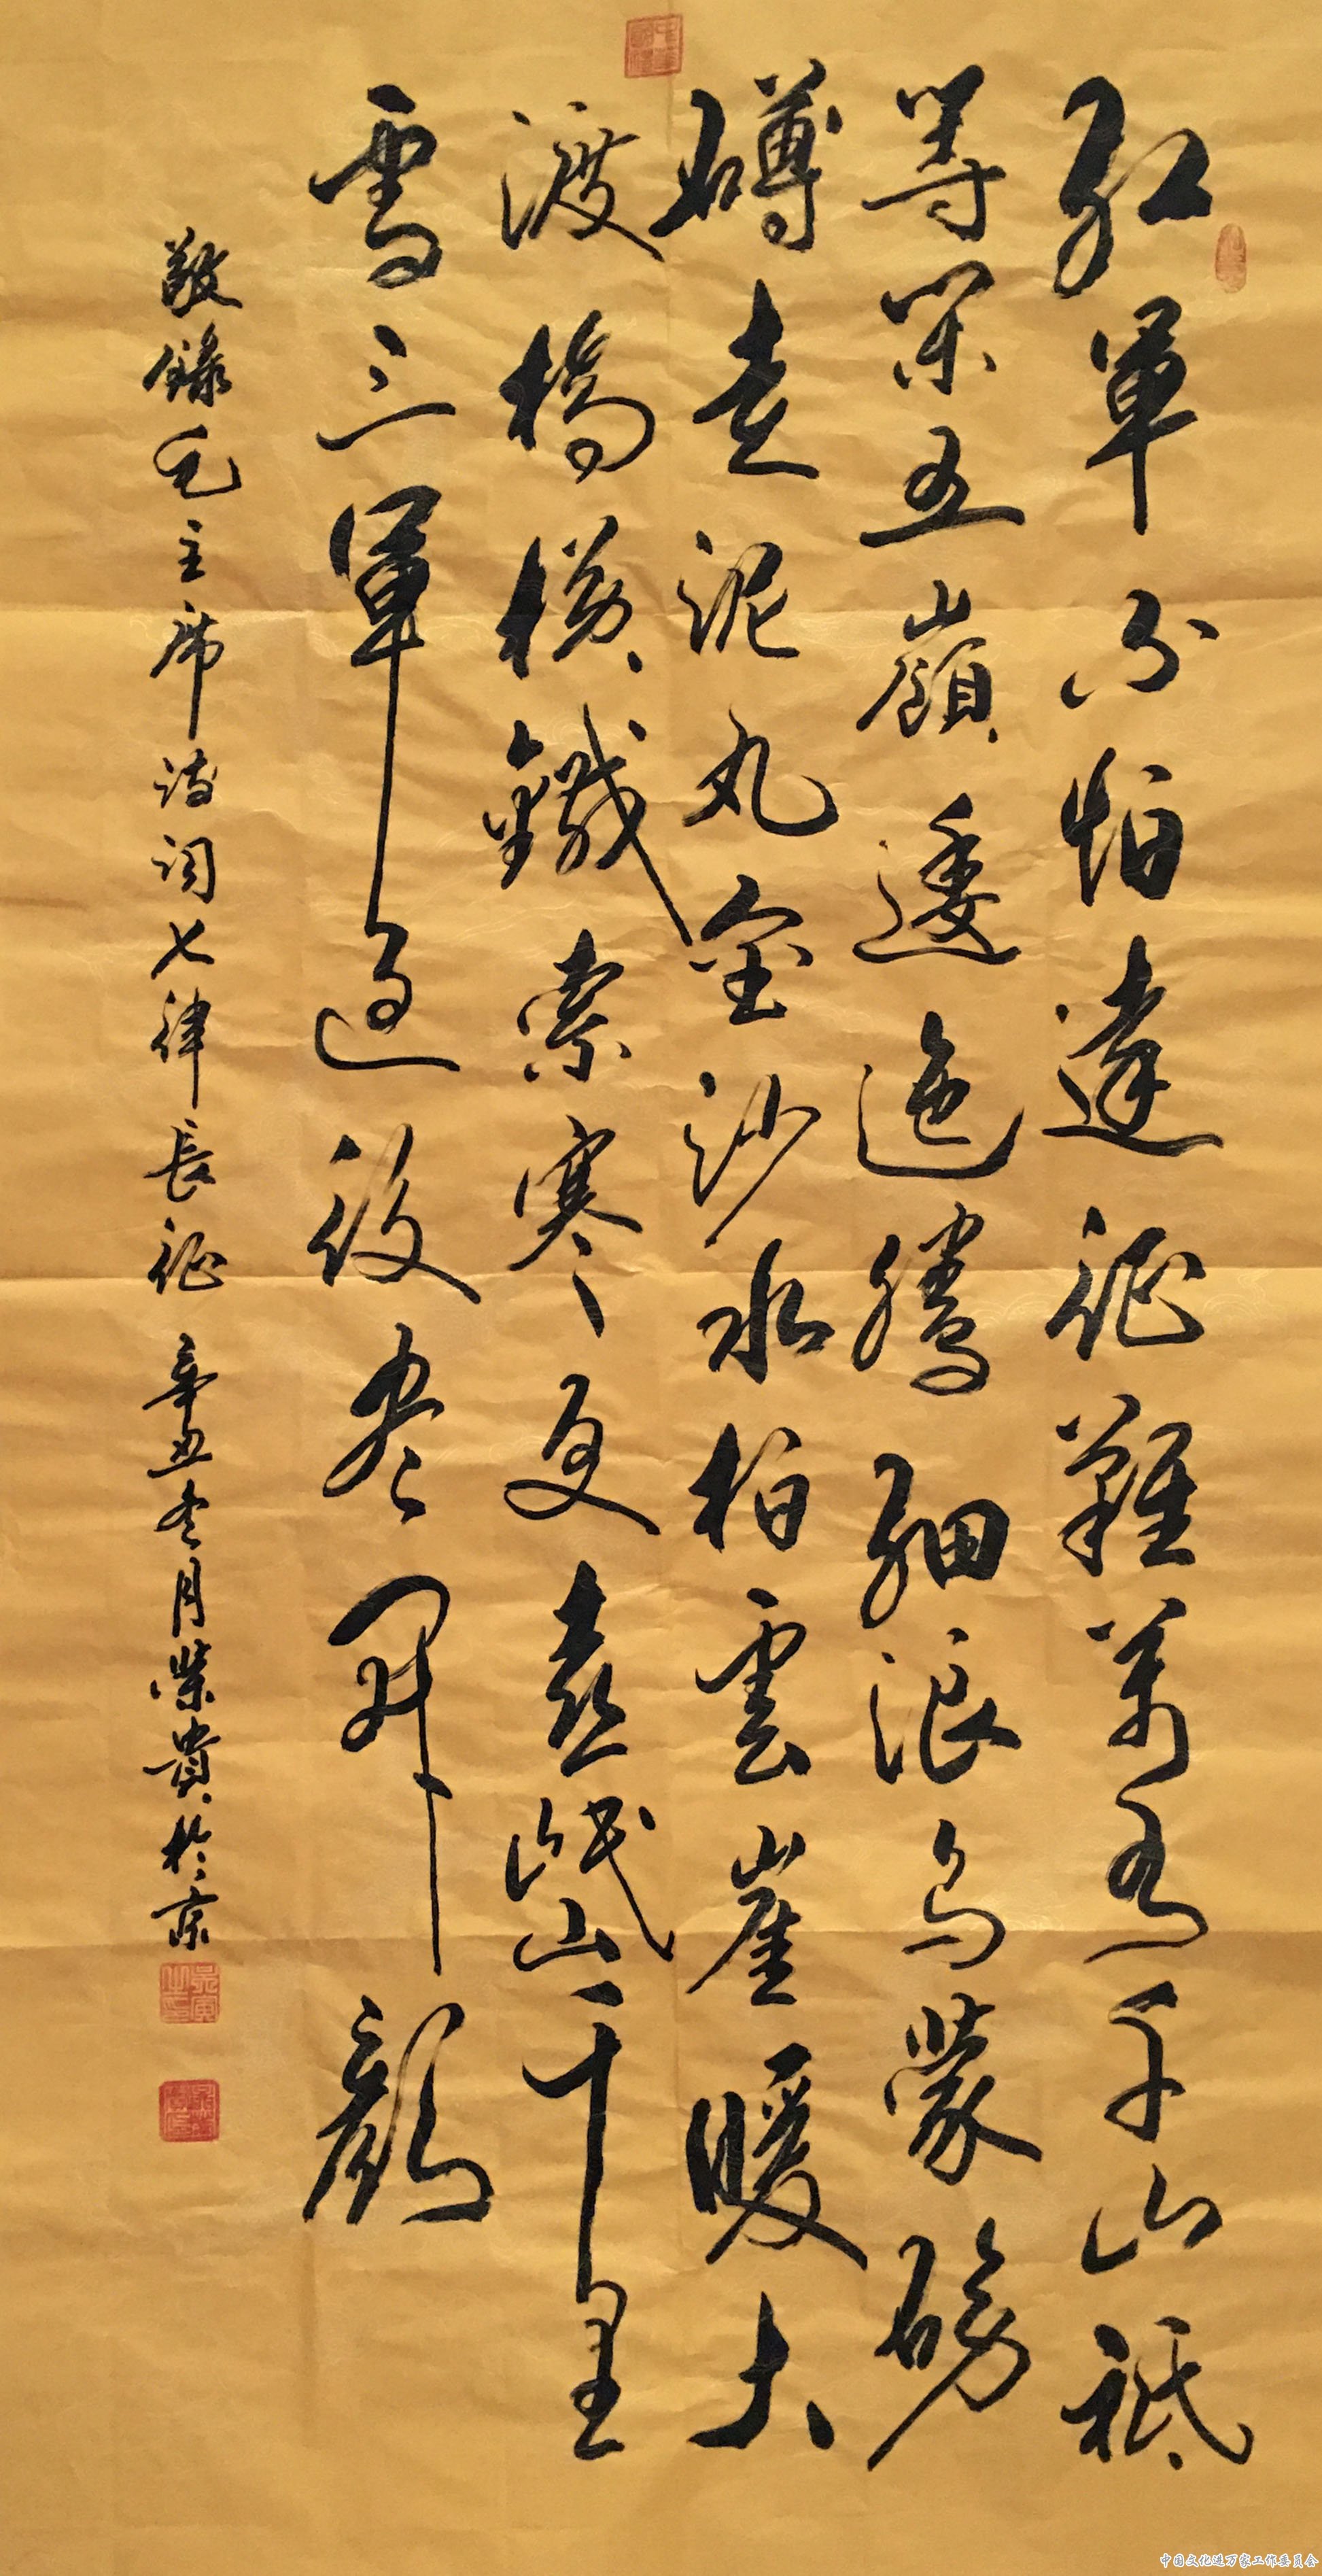 紅軍不怕遠征難萬水千山祗
等閑五嶺逶迤騰細浪烏蒙磅
礴走泥丸金沙水拍雲崖暖大
渡橋橫鐵索寒更喜岷山千里
雪三軍過後盡開顏
敬錄毛主席诗词七律長征 辛丑冬月榮貴於京
中国文化进万家工作委员会